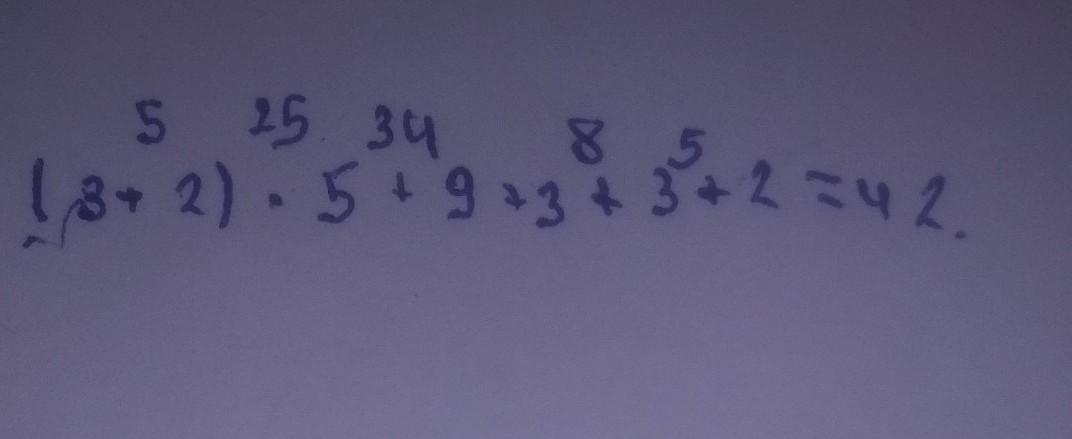 5 25 34 8 5
(3+ 2) · 5 + 9 +3 + 3 + 2 = 42.